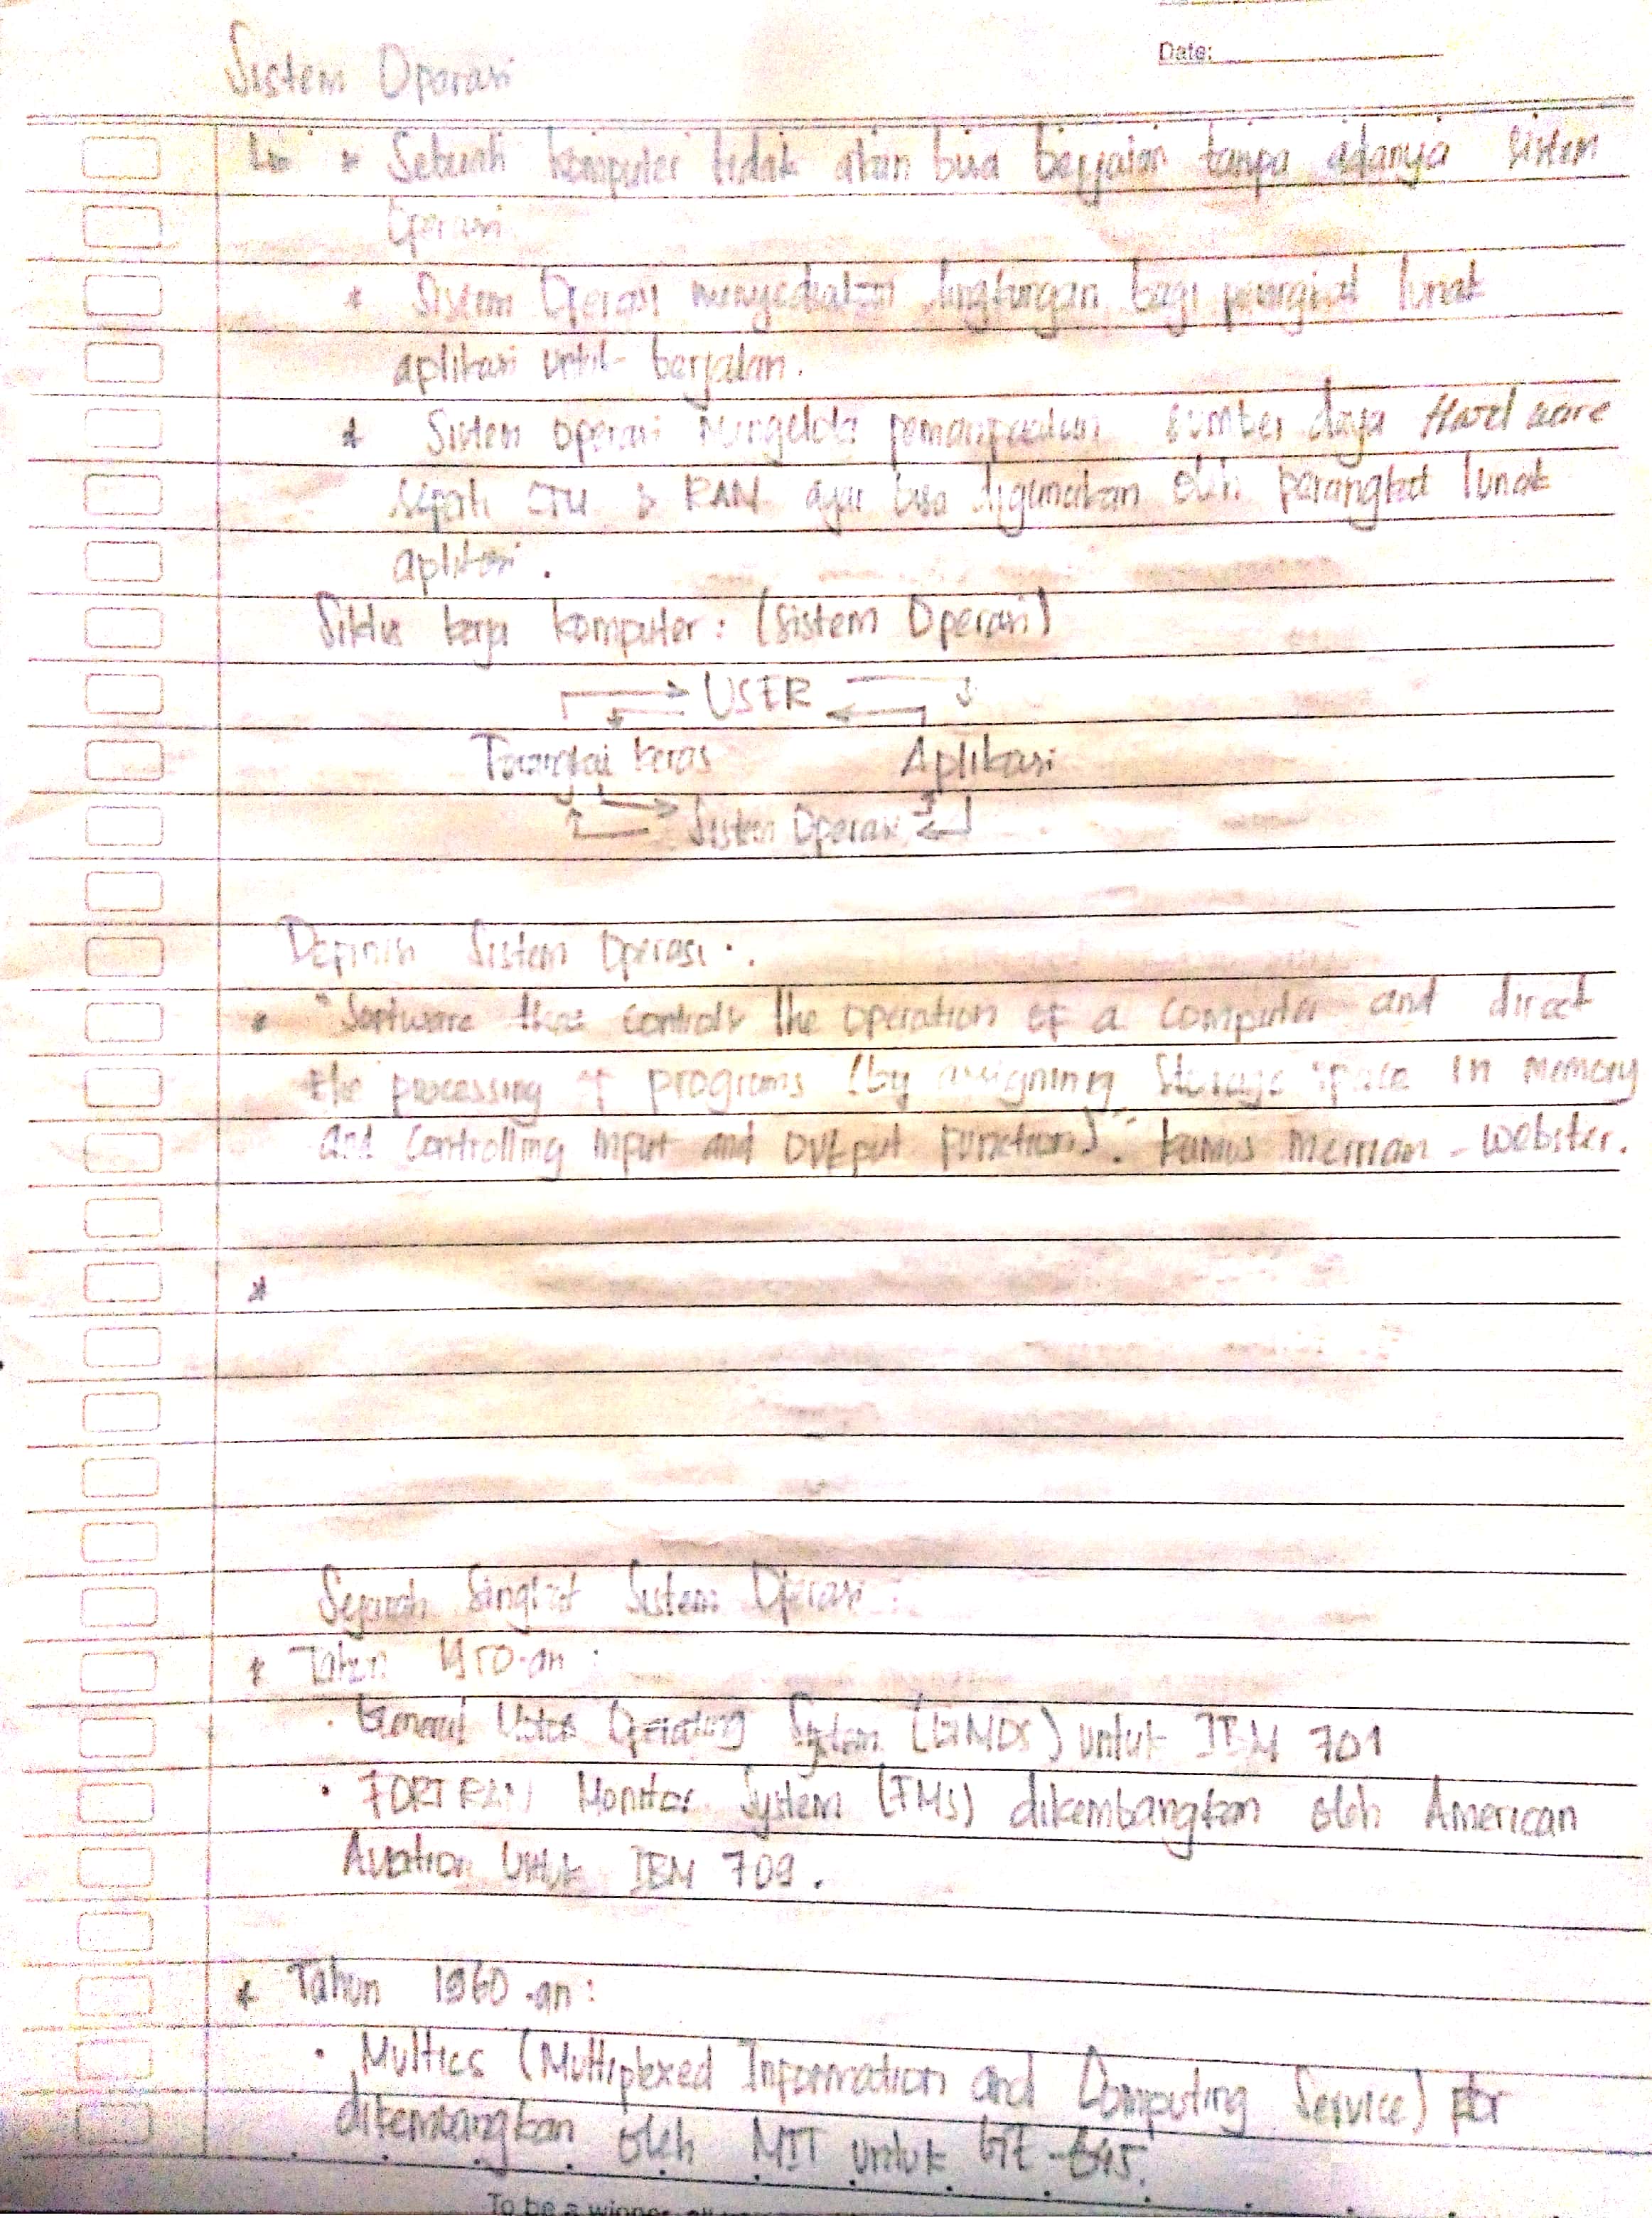 Date:
Sistem Operasi
* Sebuah komputer tidak akan bisa berjalan tanpa adanya sistem
Operasi
* Sistem Operasi menyediakan lingkungan bagi perangkat lunak
aplikasi untuk berjalan.
* Sistem operasi mengelola pemanfaatan sumber daya Hardware
seperti CPU & RAM agar bisa digunakan oleh perangkat lunak
aplikasi.
Siklus kerja komputer: (Sistem Operasi)
USER
Perangkat keras Aplikasi
Sistem Operasi
Definisi Sistem Operasi:
* "Software that controls the operation of a computer and direct
the processing of programs (by assigning storage space in memory
and controlling input and output functions)". kamus merriam-webster.
*
Sejarah Singkat Sistem Operasi:
* Tahun 1950-an:
· General Operating System untuk IBM 701
· FORTRAN Monitor System (FMS) dikembangkan oleh American
Aviation untuk IBM 709.
* Tahun 1960-an:
· Multics (Multiplexed Information and Computing Service)
dikembangkan oleh MIT untuk GE-645.
To be a winner